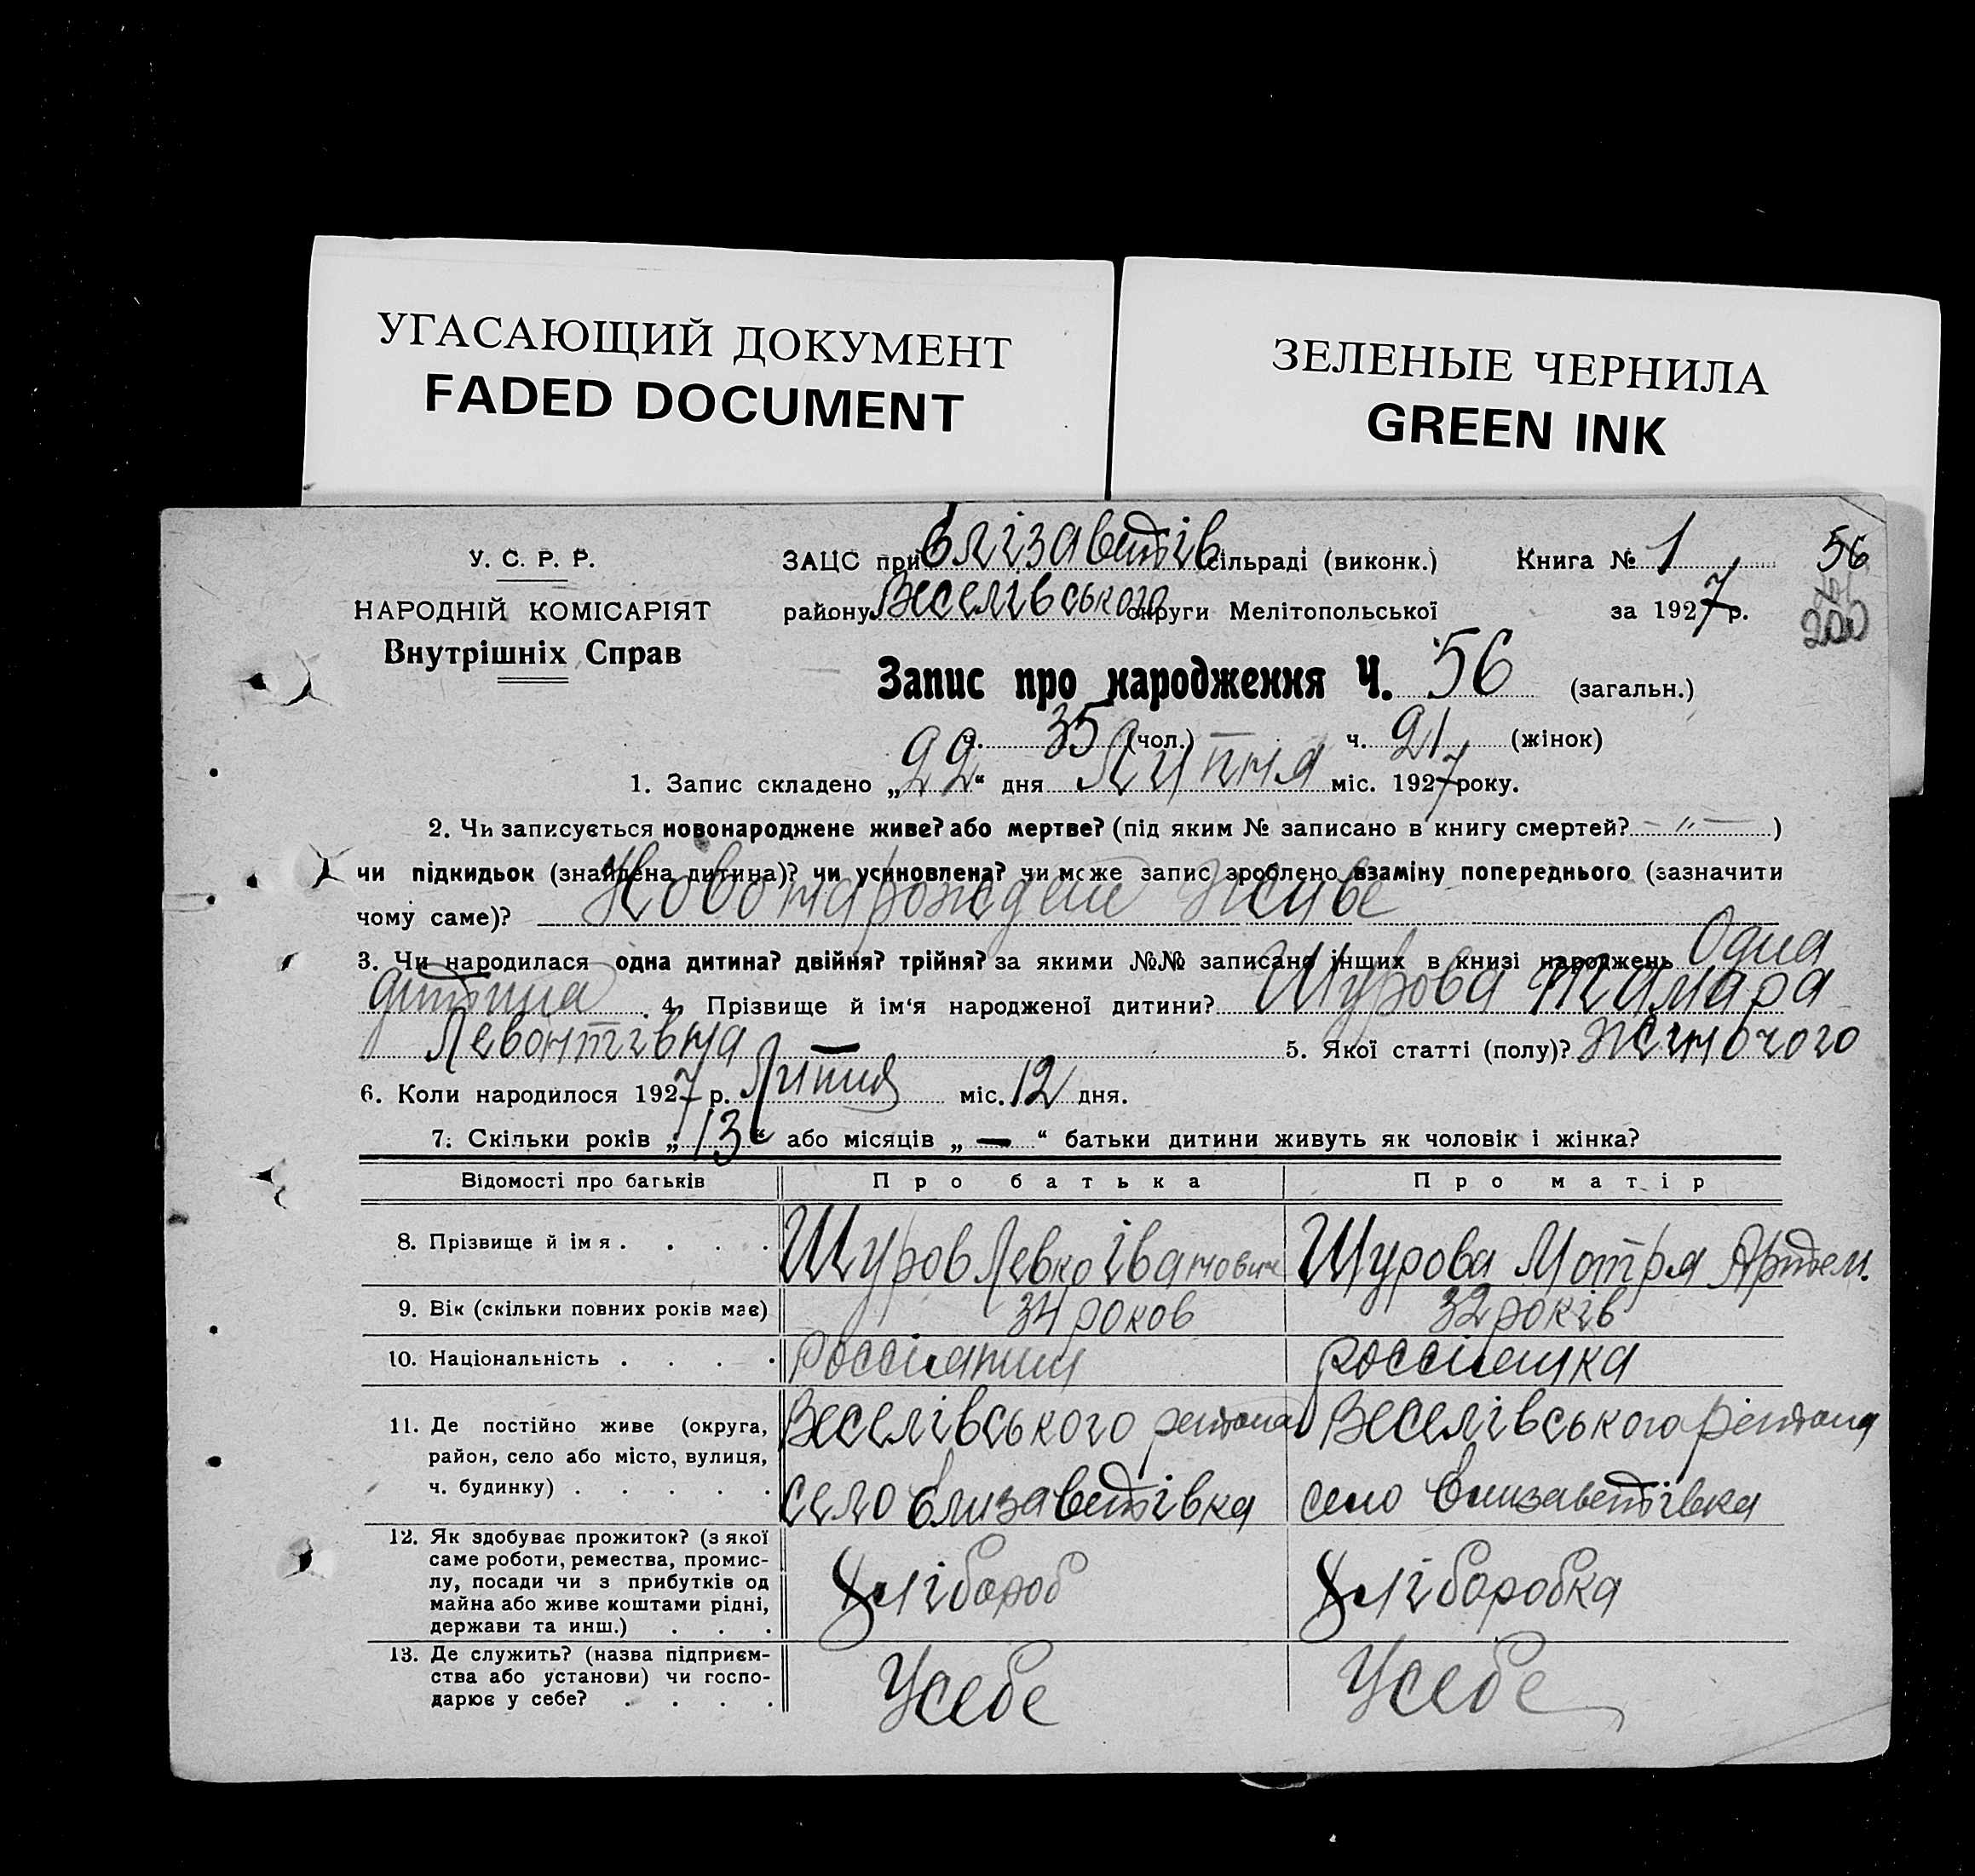 УГАСАЮЩИЙ ДОКУМЕНТ
FADED DOCUMENT
ЗЕЛЕНЫЕ ЧЕРНИЛА
GREEN INK
У. С. Р. Р.
НАРОДНІЙ КОМІСАРІЯТ
Внутрішніх Справ
ЗАЦС при Єлізаветів сільраді (виконк.) Книга № 1 56
району Веселівського округи Мелітопольської за 1927 р.
200
Запис про народження Ч. 56 (загальн.)
ч. 35 (чол.) ч. 21 (жінок)
1. Запис складено „22“ дня Липня міс. 1927 року.
2. Чи записується новонароджене живе? або мертве? (під яким № записано в книгу смертей? – " – )
чи підкидьок (знайдена дитина)? чи усиновлена? чи може запис зроблено взаміну попереднього (зазначити
чому саме)? Новонарождене живе
3. Чи народилася одна дитина? двійня? трійня? за якими №№ записано інщих в книзі народжень Одна
дитина 4. Прізвище й ім‘я народженої дитини? Шурова Тамара
Левонтівна 5. Якої статті (полу)? жиночого
6. Коли народилося 1927 р. Липня міс. 12 дня.
7. Скільки років „13“ або місяців „—“ батьки дитини живуть як чоловік і жінка?
Відомості про батьків Про батька Про матір
8. Прізвище й імя . . . . Шуров Левко Іванович Шурова Мотря Артем.
9. Вік (скільки повних років має) 34 роков 32 років
10. Національність . . . . россіянин россіянка
11. Де постійно живе (округа,
район, село або місто, вулиця,
ч. будинку) . . . . .
Веселівського району
село Єлизаветівка
Веселівського району
село Єлизаветівка
12. Як здобуває прожиток? (з якої
саме роботи, ремества, промис-
лу, посади чи з прибутків од
майна або живе коштами рідні,
держави та инш.) . . .
Хлібороб
Хліборобка
13. Де служить? (назва підприєм-
ства або установи) чи госпо-
дарює у себе? . . . .
Усебе
Усебе